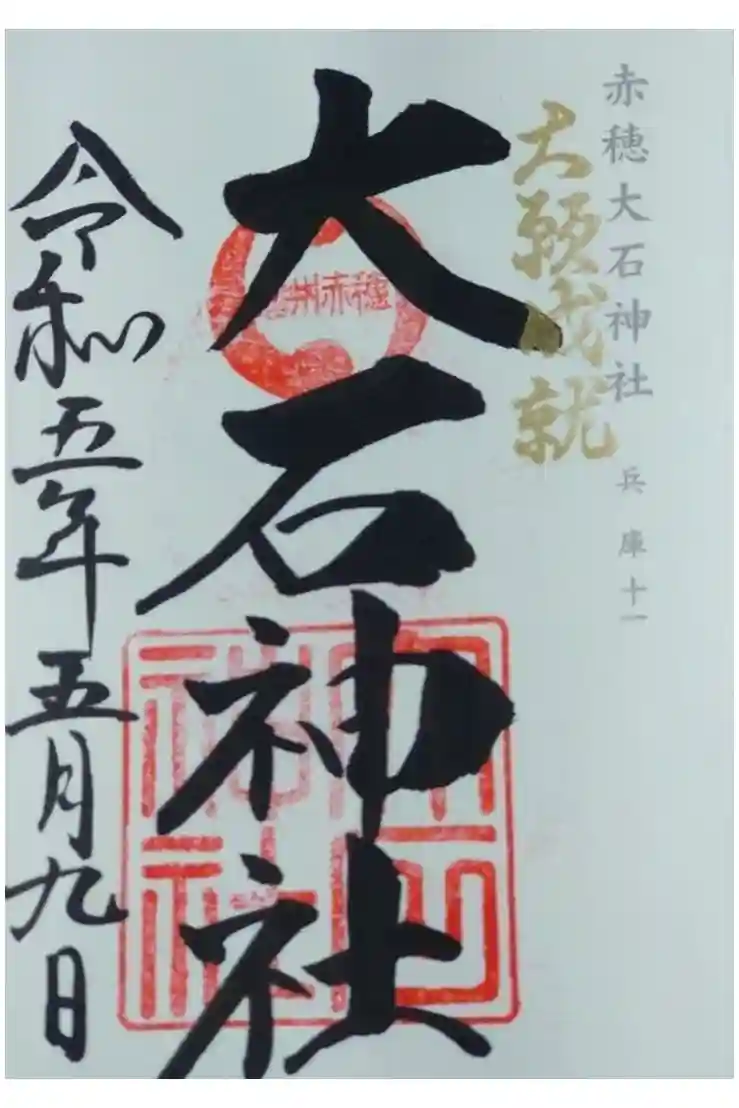 赤穂大石神社 兵庫十一
大願成就
大石神社
州赤穂
令和五年五月九日